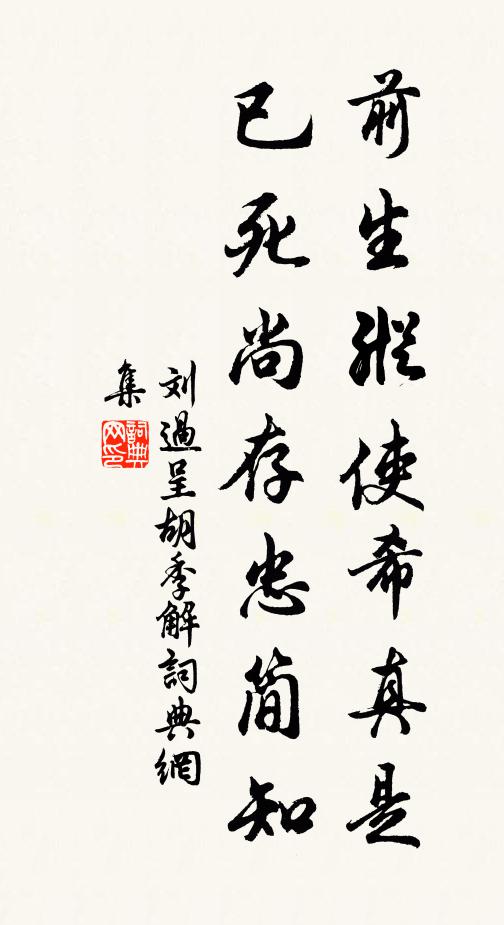 前生縱使希真是
已死尚存忠簡知
刘過呈胡季解詞典網
集
詞典
网印